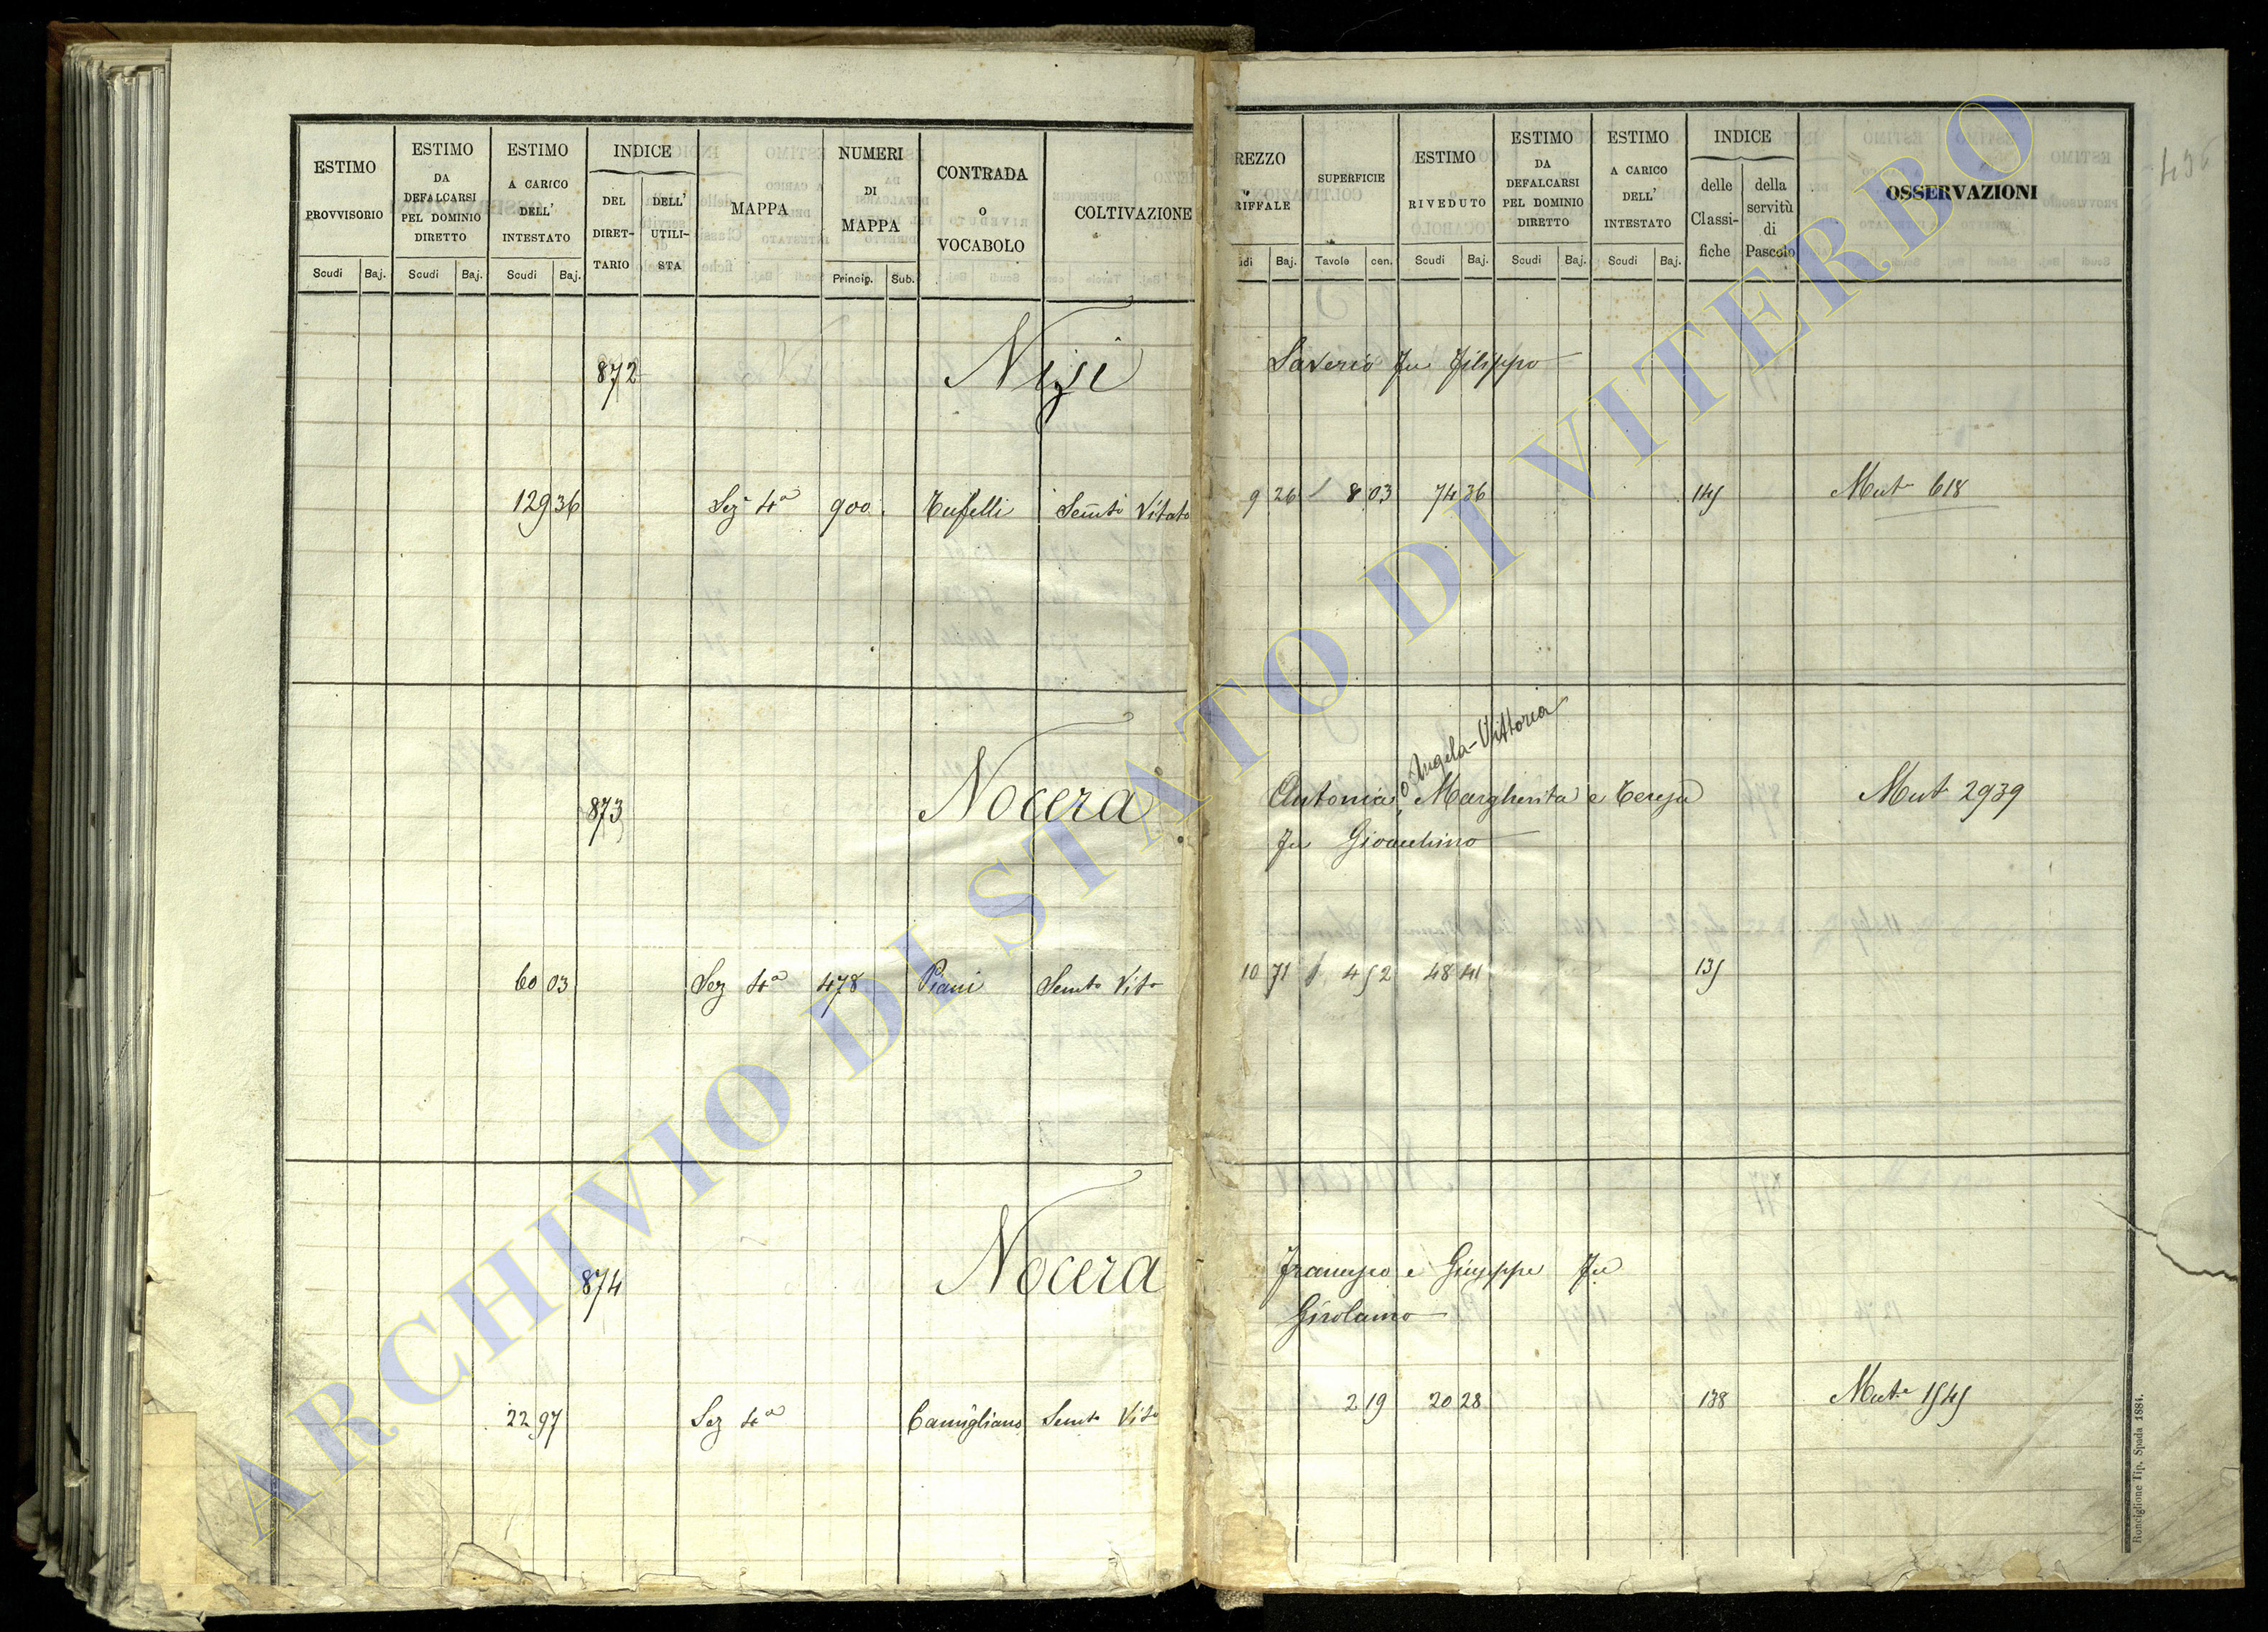 ESTIMO PROVVISORIO
Scudi Baj.
ESTIMO DA DEFALCARSI PEL DOMINIO DIRETTO
Scudi Baj.
ESTIMO A CARICO DELL' INTESTATO
Scudi Baj.
INDICE
DEL DIRET-TARIO
DELL' UTILI-STA
MAPPA
NUMERI DI MAPPA
Princip. Sub.
CONTRADA O VOCABOLO
COLTIVAZIONE
REZZO
RIFFALE
udi Baj.
SUPERFICIE
Tavole cen.
ESTIMO RIVEDUTO
Scudi Baj.
ESTIMO DA DEFALCARSI PEL DOMINIO DIRETTO
Scudi Baj.
ESTIMO A CARICO DELL' INTESTATO
Scudi Baj.
INDICE
delle Classi-fiche
della servitù di Pascolo
OSSERVAZIONI
436
872 Nizi Saverio fu Filippo
129 36 Sez 4ª 900 Tufelli Semto Vitato 9 26 8 03 74 36 145 Mut 618
o Angela-Vittoria
873 Nocera Antonia, Margherita e Teresa Mut 2939
fu Gioacchino
60 03 Sez 4ª 478 Piani Semto Vito 10 71 4 52 48 41 135
874 Nocera Francesco e Giuseppe fu
Girolamo
22 97 Sez 4ª Camigliano Semto Vito 2 19 20 28 138 Mut. 1545
Ronciglione Tip. Spada 1884.
ARCHIVIO DI STATO DI VITERBO